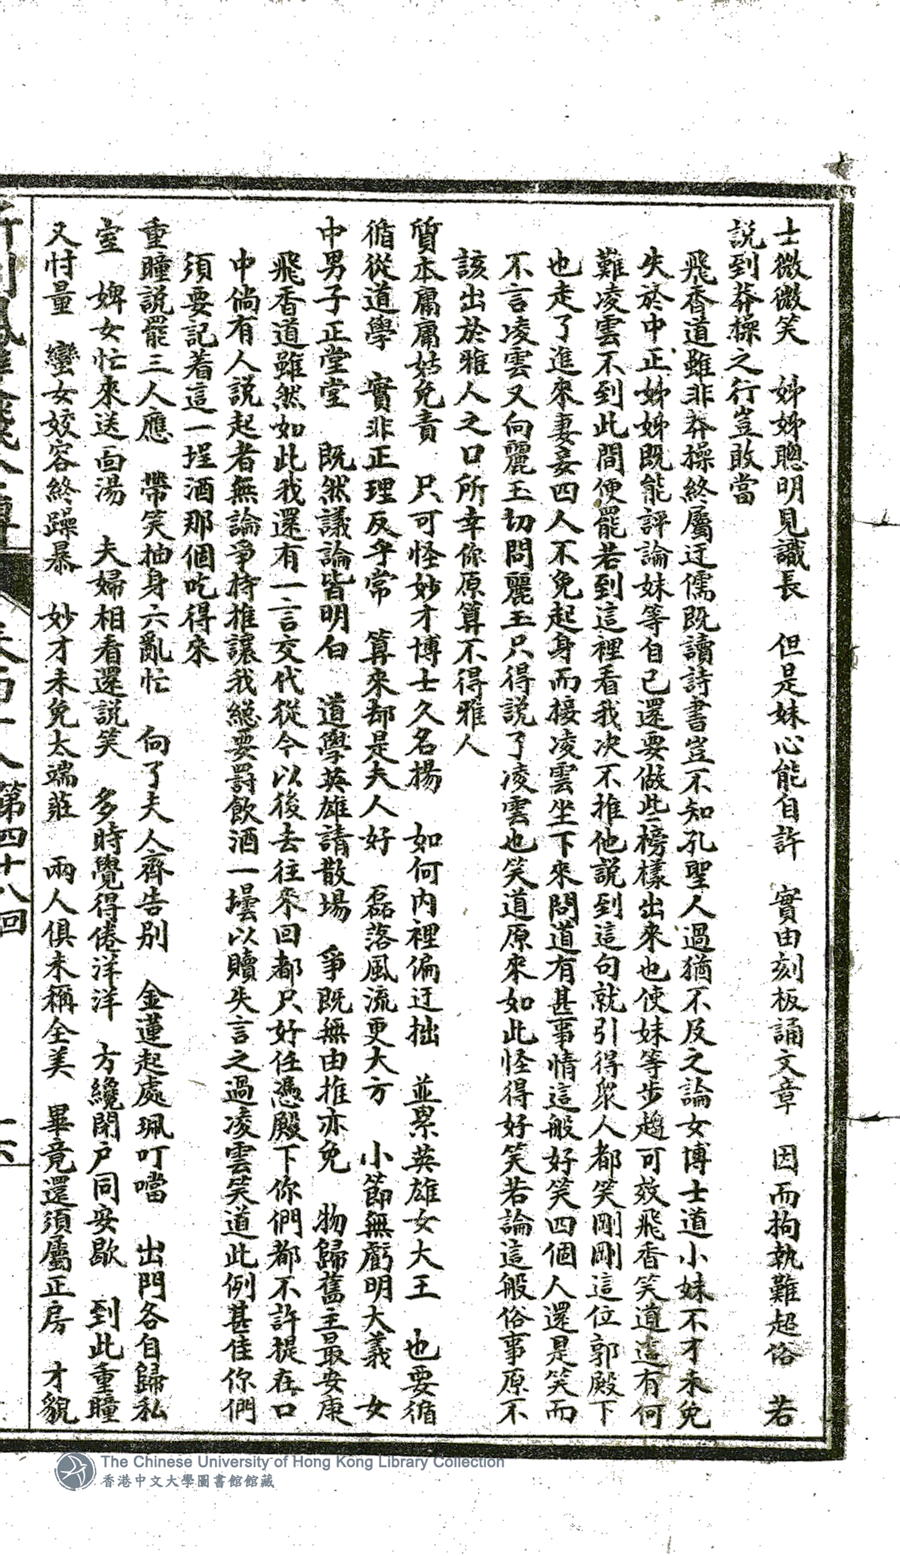 士微微笑　姊姊聰明見識長　但是妹心能自許　實由刻板誦文章　因而拘執難超俗　若
說到莽操之行豈敢當
飛香道雖非莽操終屬迂儒既讀詩書豈不知孔聖人過猶不及之論女博士道小妹不才未免
失於中正姊姊既能評論妹等自己還要做些榜樣出來也使妹等步趨可效飛香笑道這有何
難凌雲不到此間便罷若到這裡看我决不推他說到這句就引得眾人都笑剛剛這位郭殿下
也走了進來妻妾四人不免起身而接凌雲坐下來問道有甚事情這般好笑四個人還是笑而
不言凌雲又向麗玉切問麗玉只得說了凌雲也笑道原來如此怪得好笑若論這般俗事原不
該出於雅人之口所幸你原算不得雅人
質本庸庸姑免責　只可怪妙才博士久名揚　如何內裡偏迂拙　並累英雄女大王　也要循
循從道學　實非正理反乎常　算來却是夫人好　磊落風流更大方　小節無虧明大義　女
中男子正堂堂　既然議論皆明白　道學英雄請散場　爭既無由推亦免　物歸舊主最安康
飛香道雖然如此我還有一言交代從今以後去往來回都只好任憑殿下你們都不許提在口
中倘有人說起者無論爭持推讓我總要罸飲酒一壜以贖失言之過凌雲笑道此例甚佳你們
須要記着這一埕酒那個吃得來
重瞳說罷三人應　帶笑抽身亦亂忙　向了夫人齊告别　金蓮起處珮叮噹　出門各自歸私
室　婢女忙來送面湯　夫婦相看還說笑　多時覺得倦洋洋　方纔閉户同安歇　到此重瞳
又忖量　蠻女姣容終躁暴　妙才未免太端莊　兩人俱未稱全美　畢竟還須屬正房　才貌
第四十八回
十六
The Chinese University of Hong Kong Library Collection
香港中文大學圖書館館藏